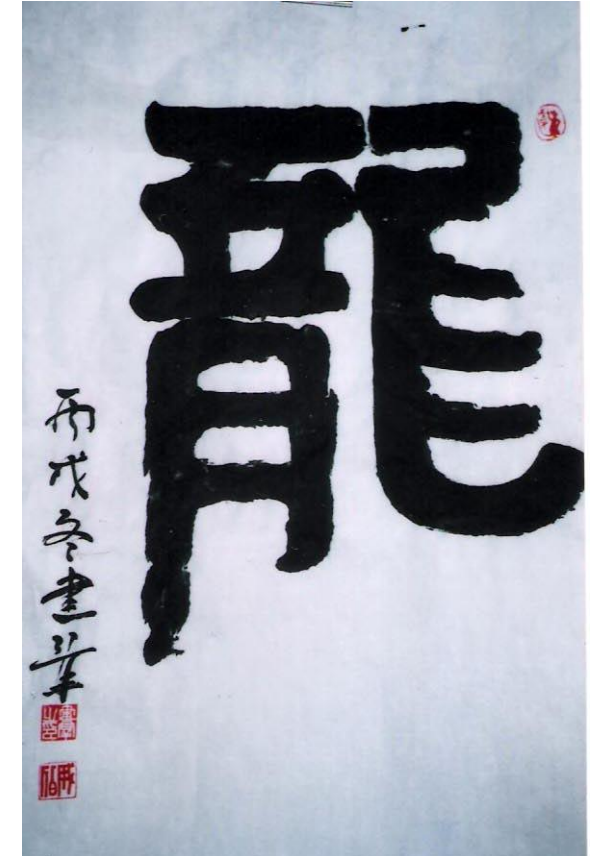 龍
丙戌冬憲華